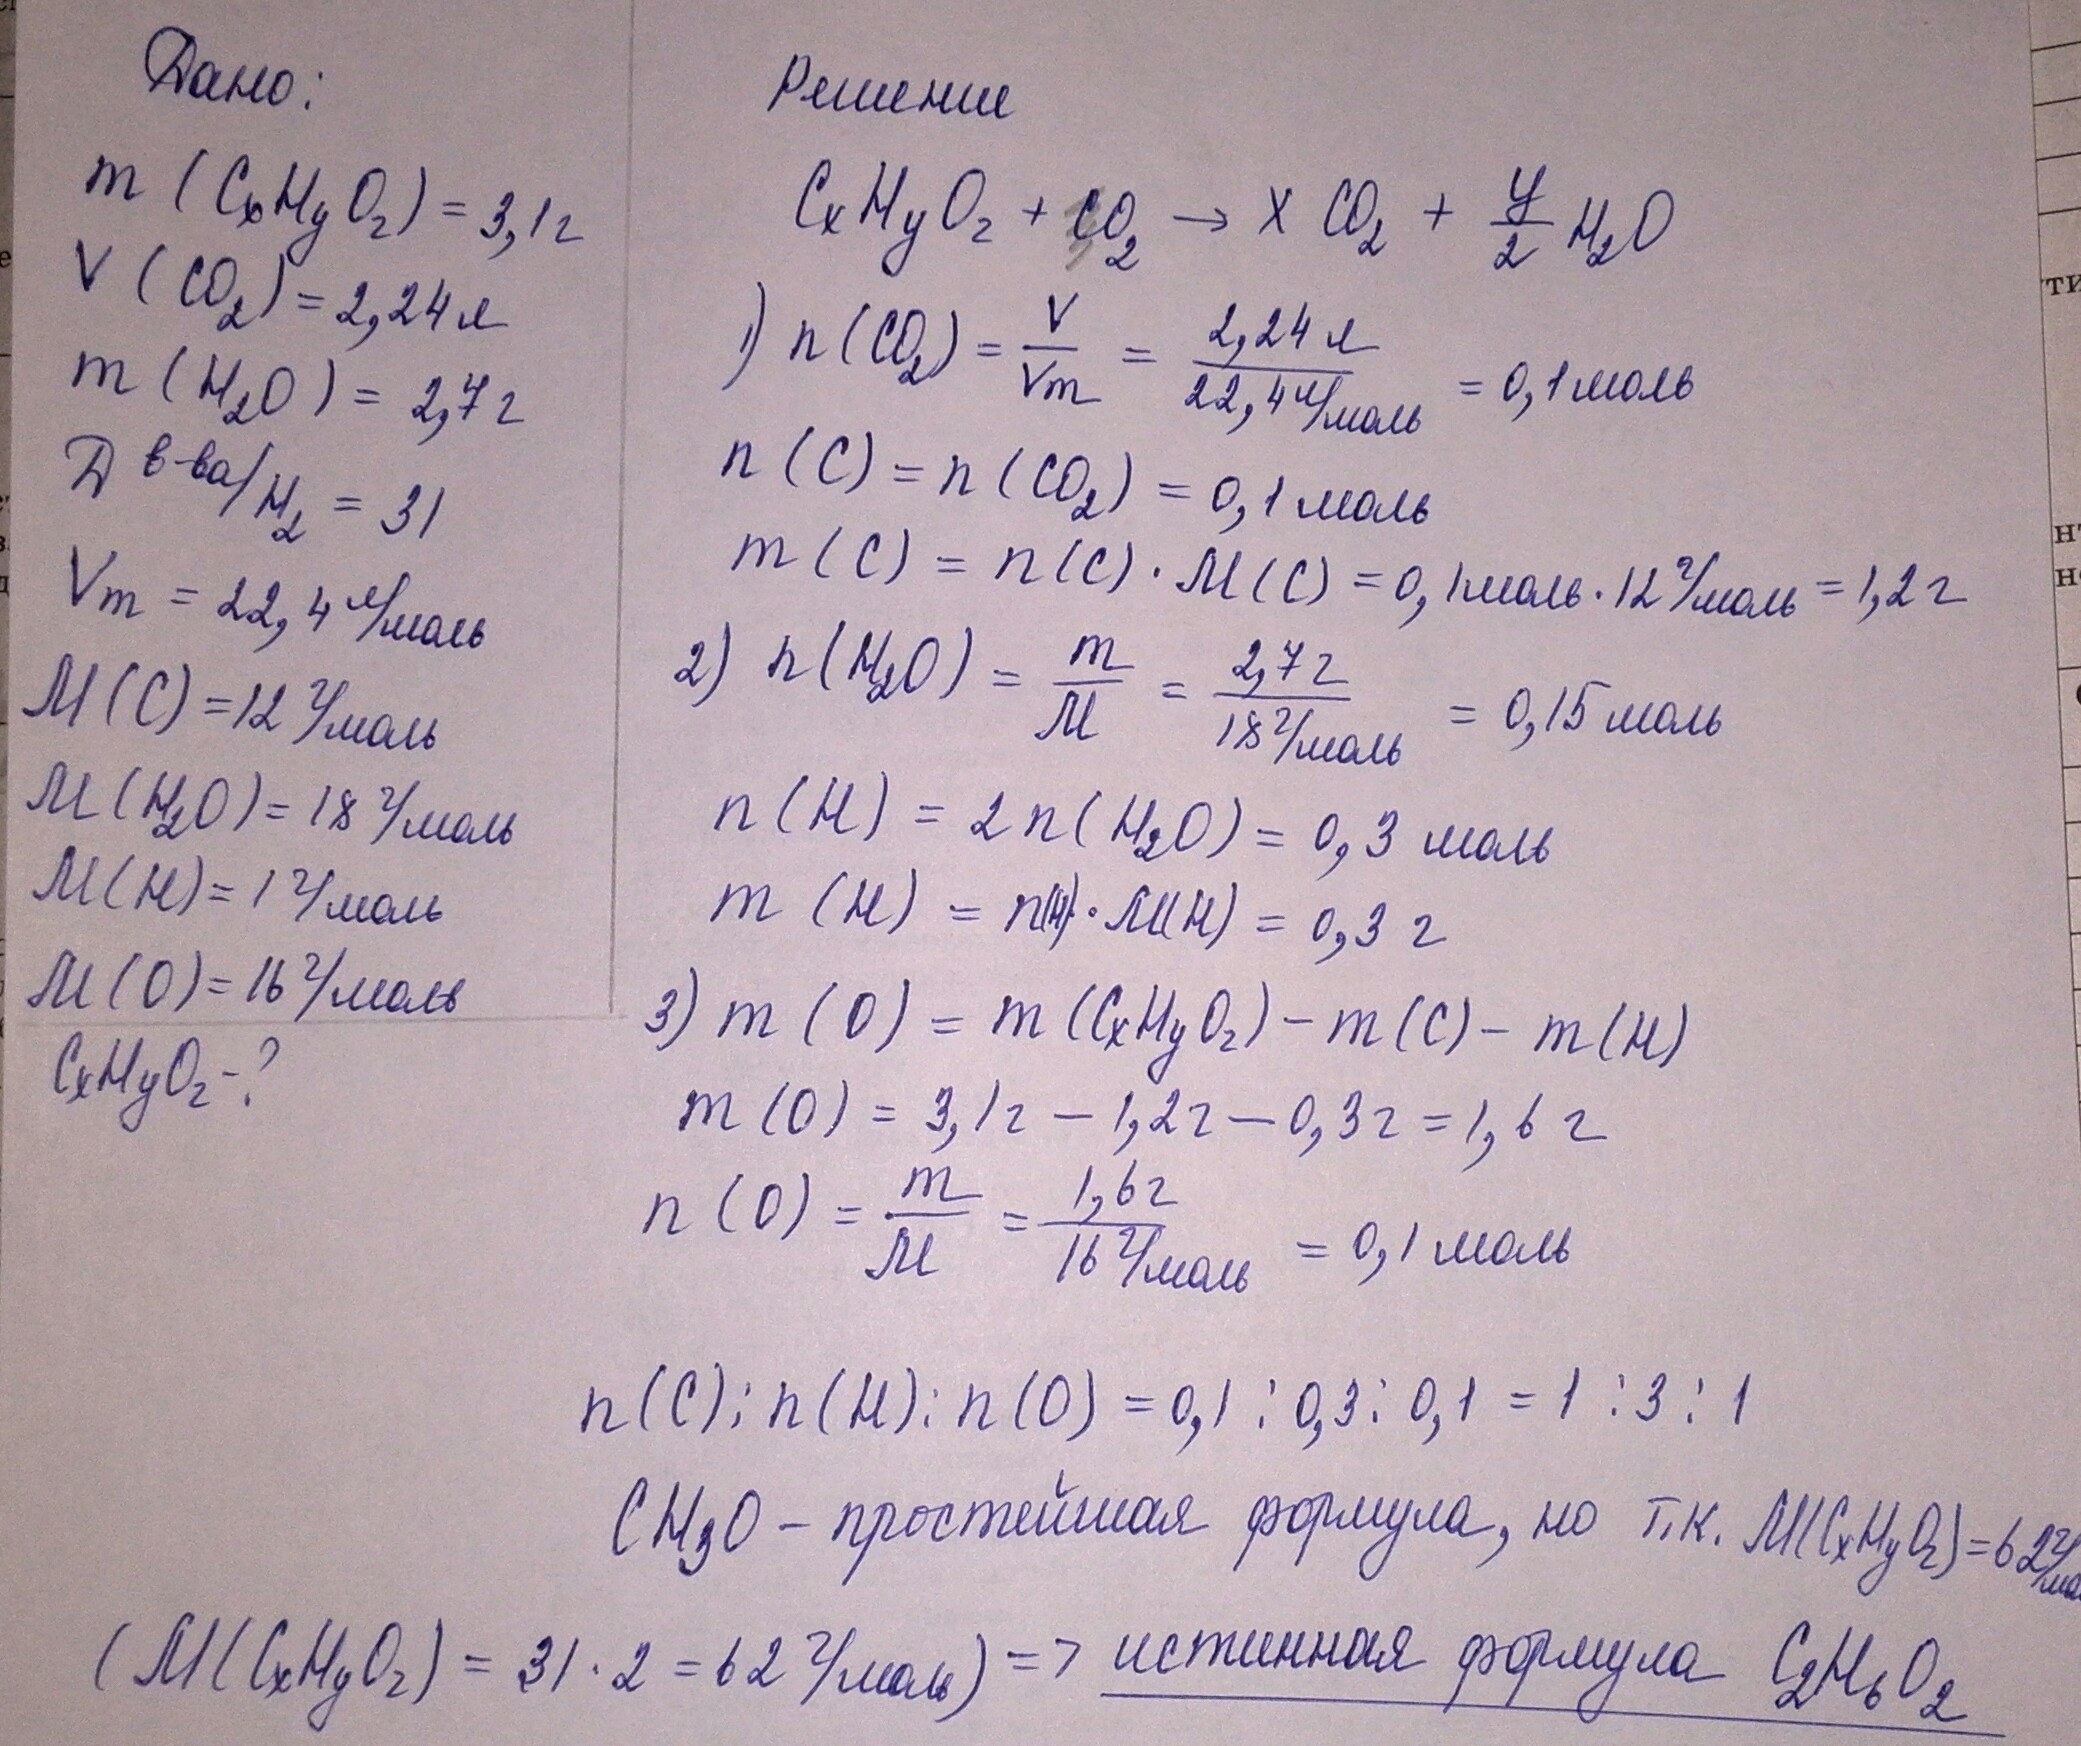 Дано:
m (CxHyOz) = 3,1г
V (CO2) = 2,24л
m (H2O) = 2,7г
D в-ва/H2 = 31
Vm = 22,4 л/моль
M (C) = 12 г/моль
M (H2O) = 18 г/моль
M (H) = 1 г/моль
M (O) = 16 г/моль
CxHyOz - ?
Решение
CxHyOz + CO2 → X CO2 + y/2 H2O
1) n (CO2) = V/Vm = 2,24 л/22,4 л/моль = 0,1 моль
n (C) = n (CO2) = 0,1 моль
m (C) = n (C) · M (C) = 0,1моль · 12 г/моль = 1,2г
2) n (H2O) = m/M = 2,7г/18 г/моль = 0,15 моль
n (H) = 2n (H2O) = 0,3 моль
m (H) = n(H) · M(H) = 0,3 г
3) m (O) = m (CxHyOz) - m (C) - m (H)
m (O) = 3,1г - 1,2г - 0,3г = 1,6 г
n (O) = m/M = 1,6г/16 г/моль = 0,1 моль
n (C) : n (H) : n (O) = 0,1 : 0,3 : 0,1 = 1 : 3 : 1
CH3O - простейшая формула, но т.к. M(CxHyOz) = 62 г/мо
(M(CxHyOz) = 31 · 2 = 62 г/моль) => истинная формула C2H6O2